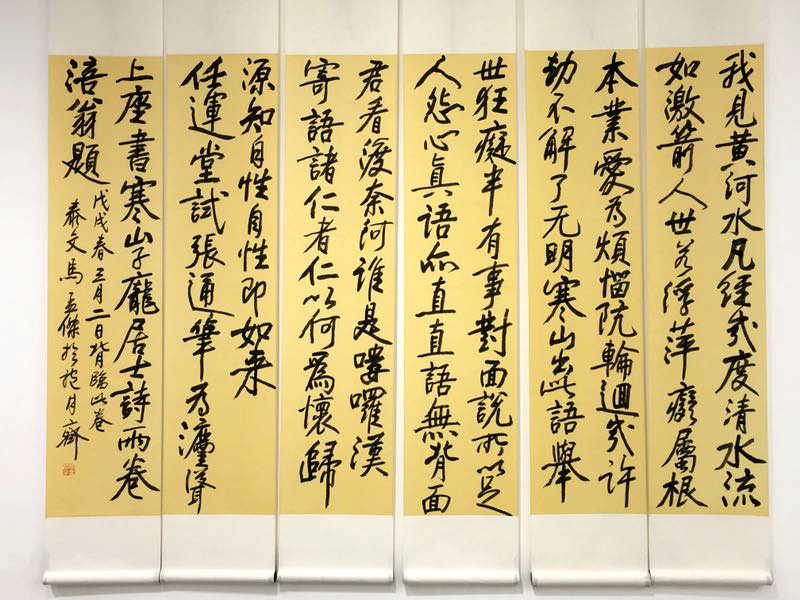 我見黃河水凡經幾度清水流
如激箭人世若浮萍癡屬根
本業愛為煩惱阬輪迴幾許
劫不解了无明寒山出此語舉
世狂癡半有事對面說所以足
人怨心真語亦直直語無背面
君看渡奈河誰是嘍囉漢
寄語諸仁者仁以何為懷歸
源知自性自性即如来
任運堂試張通筆為灋聳
上座書寒山子龐居士詩兩卷
涪翁題
戊戌春三月二日背臨此卷
泰文馬孟傑於抱月齋